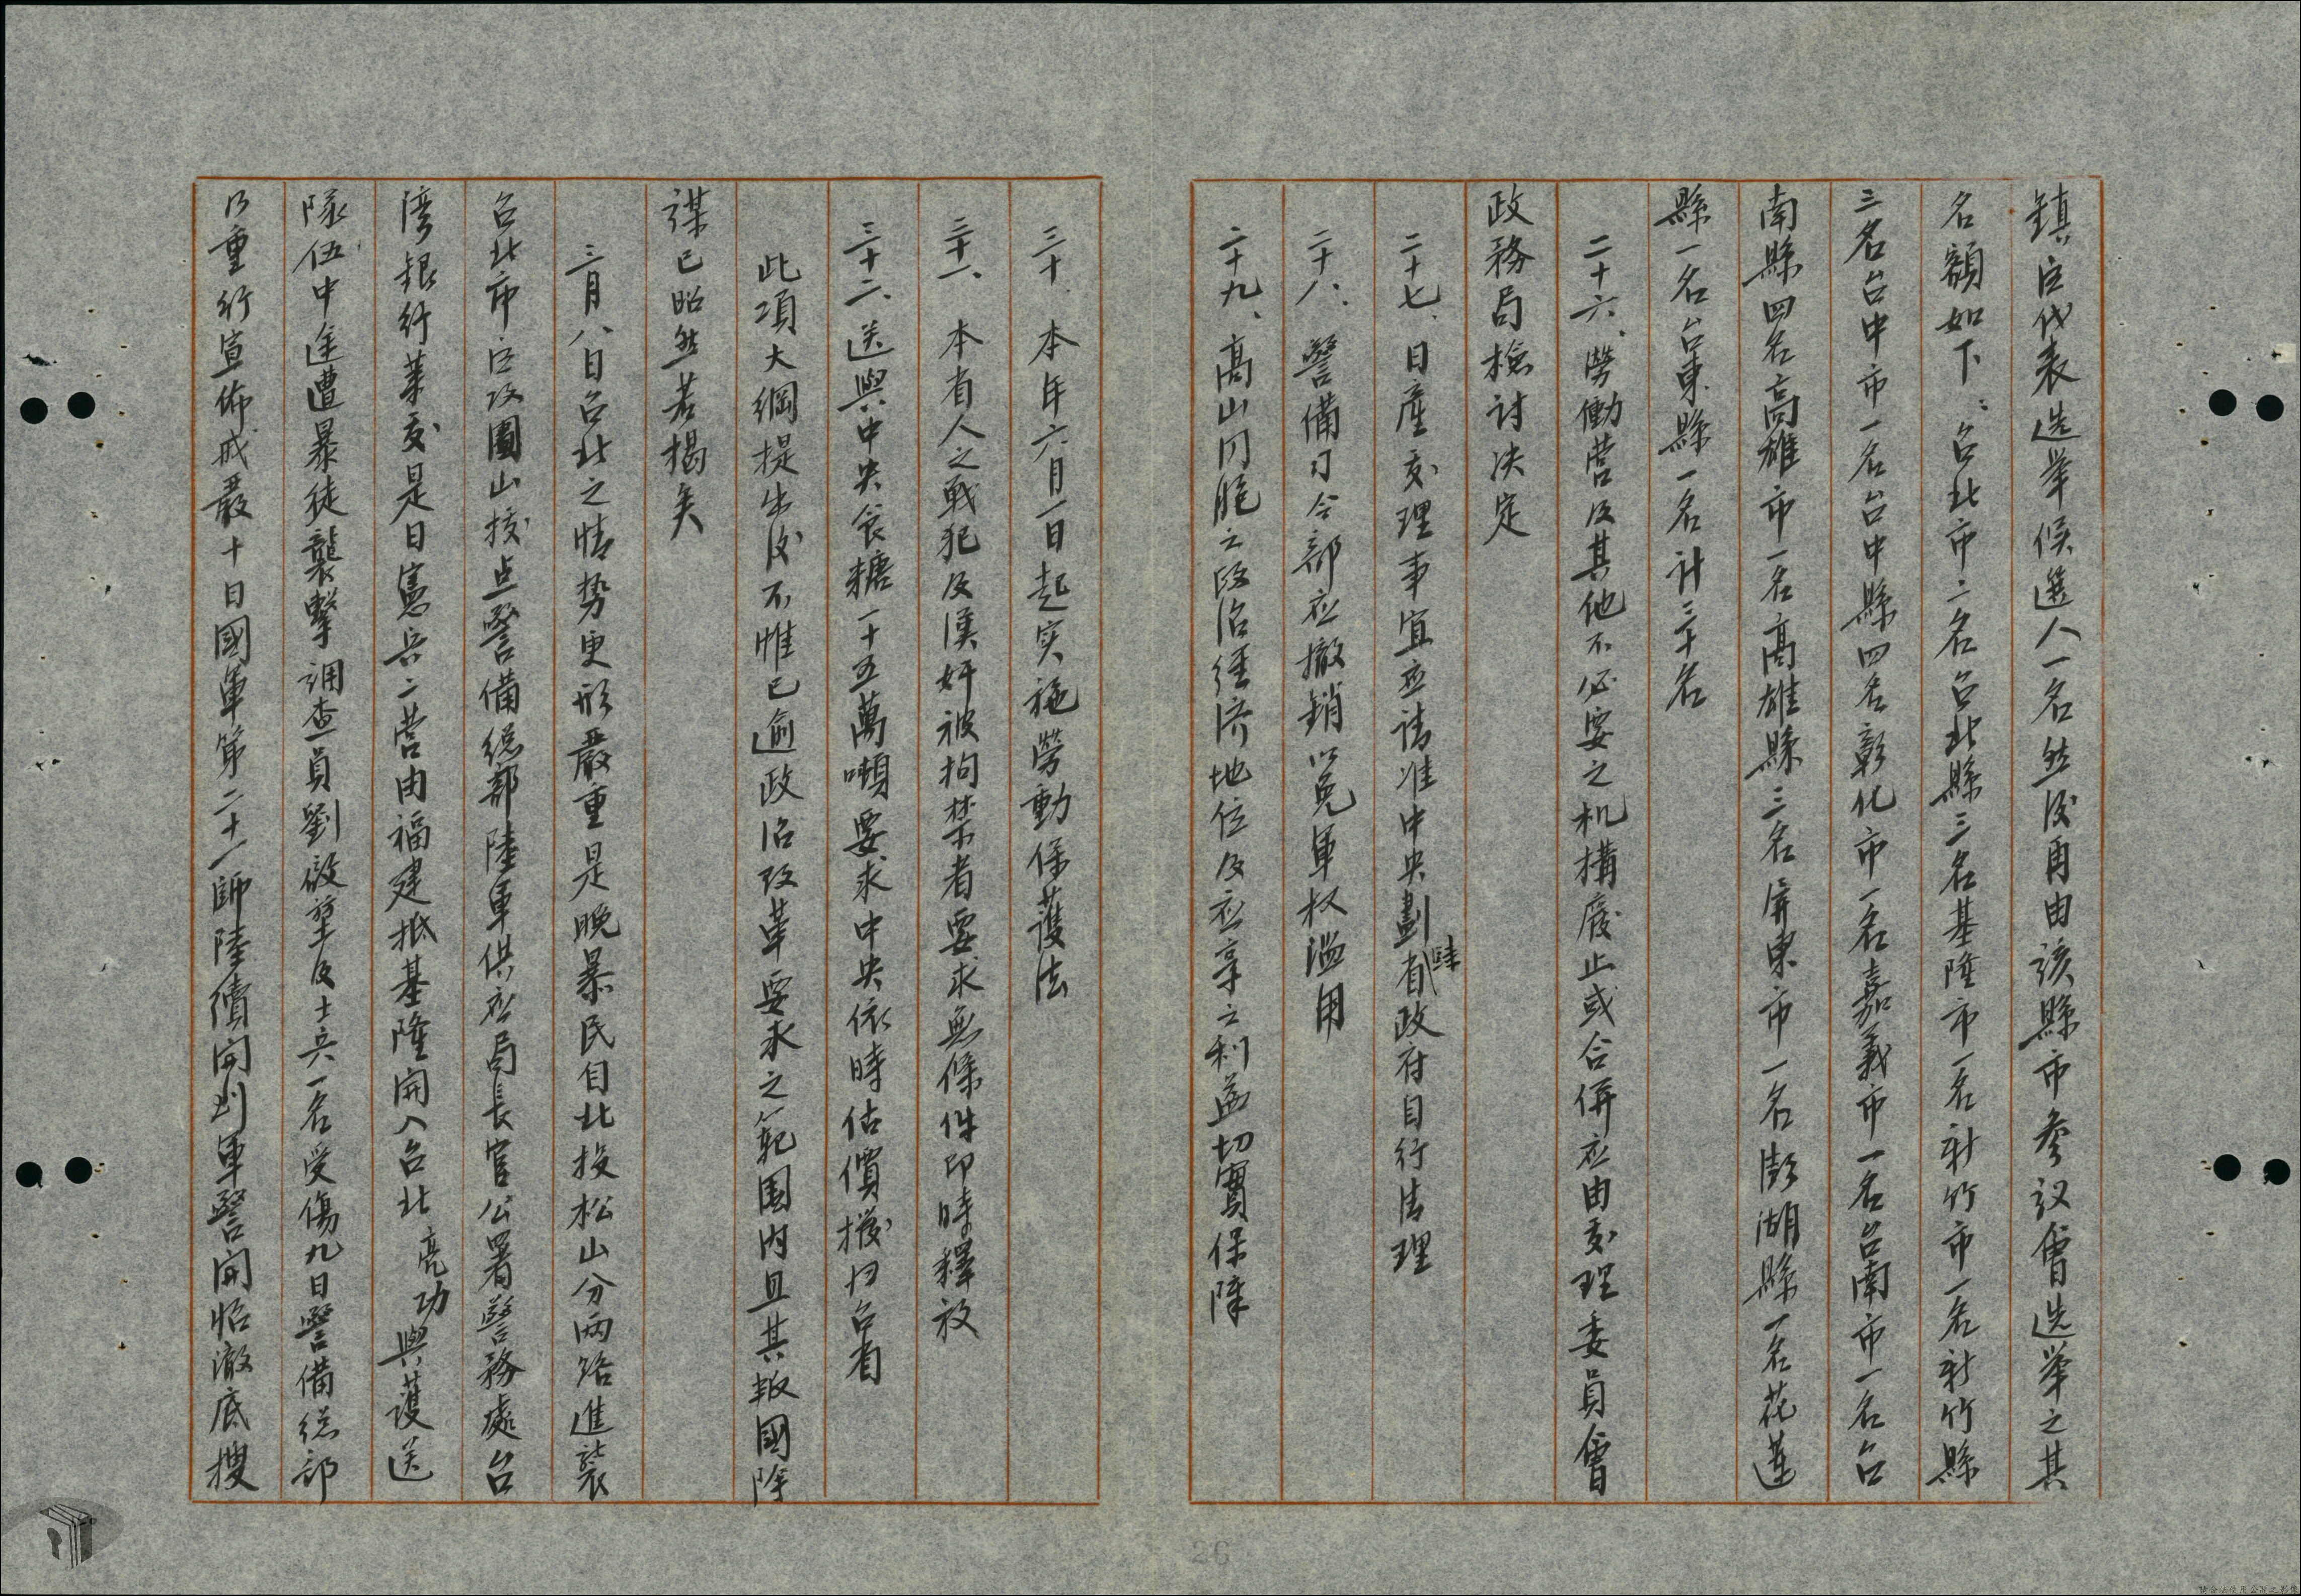 鎮区代表选举候選人一名然後再由該縣市参议會选举之其
名額如下：台北市二名台北縣三名基隆市一名新竹市一名新竹縣
三名台中市一名台中縣四名彰化市一名嘉義市一名台南市一名台
南縣四名高雄市一名高雄縣三名屏東市一名澎湖縣一名花蓮
縣一名台東縣一名計三十名
二十六、勞働营及其他不必要之机構废止或合併应由处理委員會
政務局檢讨决定
二十七、日產处理事宜应请准中央劃歸省政府自行清理
二十八、警備司令部应撤銷以免軍权滥用
二十九、高山同胞之政治经济地位及应享之利益切實保障
三十、本年六月一日起实施勞動保護法
三十一、本省人之戰犯及漢奸被拘禁者要求無條件即時釋放
三十二、送與中央食糖一十五萬噸要求中央依時估價撥归台省
此項大綱提出後不惟已逾政治改革要求之範围内且其叛國陰
謀已昭然若揭矣
三月八日台北之情势更形嚴重是晚暴民自北投松山分两路進襲
台北市区及圓山校点警備總部陸軍供应局長官公署警務處台
湾銀行等处是日憲兵二营由福建抵基隆開入台北亮功與護送
隊伍中途遭暴徒襲擊調查員劉啟堃及士兵一名受傷九日警備總部
乃重行宣佈戒嚴十日國軍第二十一師陸續開到軍警開始澈底搜
26